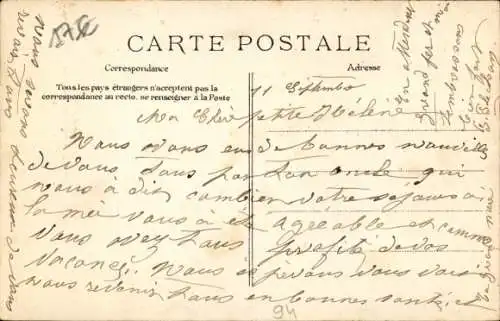 CARTE POSTALE
Correspondance
Adresse
Tous les pays étrangers n'acceptent pas la
correspondance au recto. (se renseigner à la Poste)
11 Septembre
Ma Chère petite Hélène
Nous avons eu de bonnes nouvelles
de vous tous par ton oncle qui
nous à dit combien votre séjour a
la mer vous à été agréable et comme
vous avez tous profité de vos
vacances. Nous espérons vous voir
nous revenir tous en bonne santé et
nous serons
heureux de vous
En attendant
grand père et
94